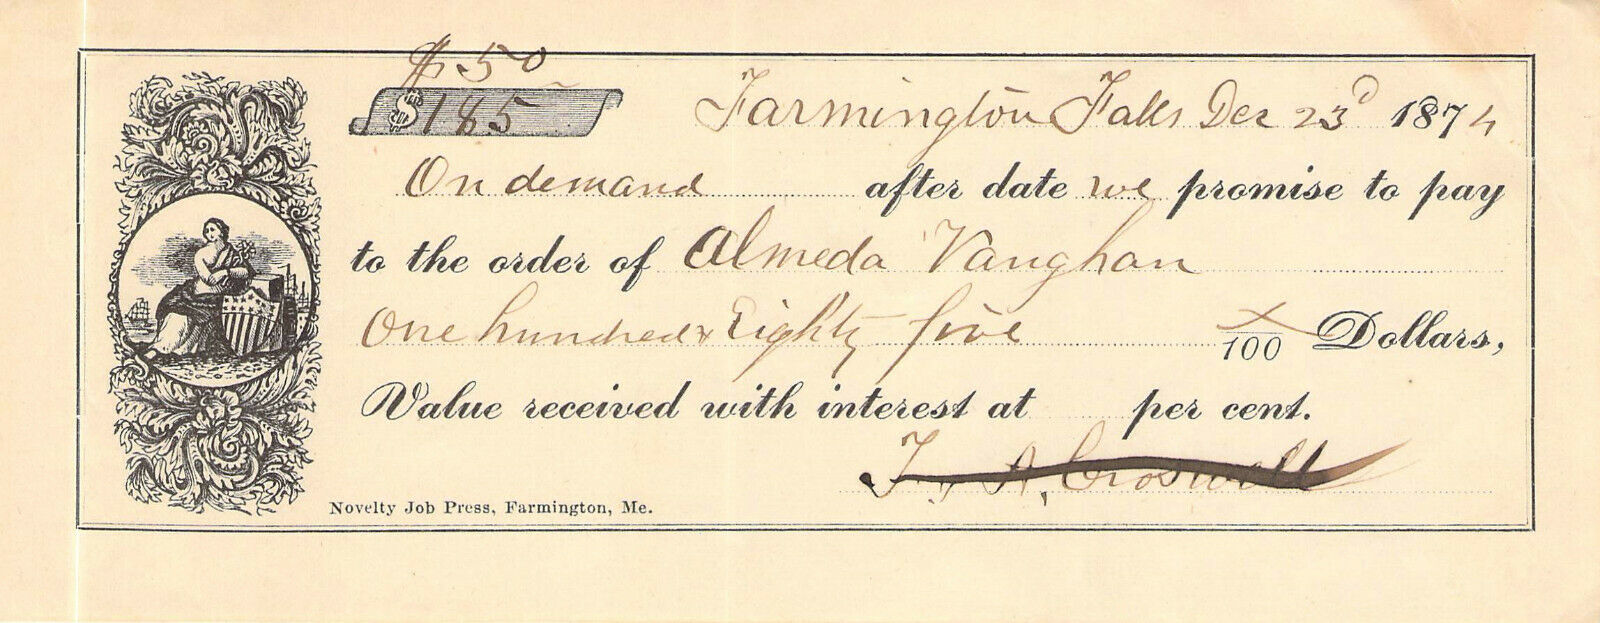 $50
$185
Farmington Falls Dec 23d 1874
On demand after date we promise to pay
to the order of Almeda Vaughan
One hundred & Eighty five x/100 Dollars,
Value received with interest at per cent.
F. & A. Croswell
Novelty Job Press, Farmington, Me.